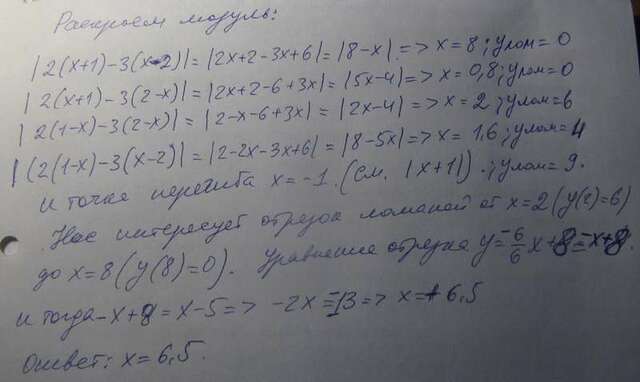 Раскроем модуль:
|2(x+1)-3(x-2)|=|2x+2-3x+6|=|8-x|=>x=8; yлом=0
|2(x+1)-3(2-x)|=|2x+2-6+3x|=|5x-4|=>x=0,8; yлом=0
|2(1-x)-3(2-x)|=|2-x-6+3x|=|2x-4|=>x=2; yлом=6
|(2(1-x)-3(x-2)|=|2-2x-3x+6|=|8-5x|=>x=1,6; yлом=4
и точке перегиба x=-1. (см. |x+1|).; yлом=9.
Нас интересует отрезок ломаной от x=2(y(2)=6)
до x=8(y(8)=0). Уравнение отрезка y=-6/6x+8=-x+8.
и тогда -x+8=x-5=> -2x=-13=> x=+6,5
Ответ: x=6,5.